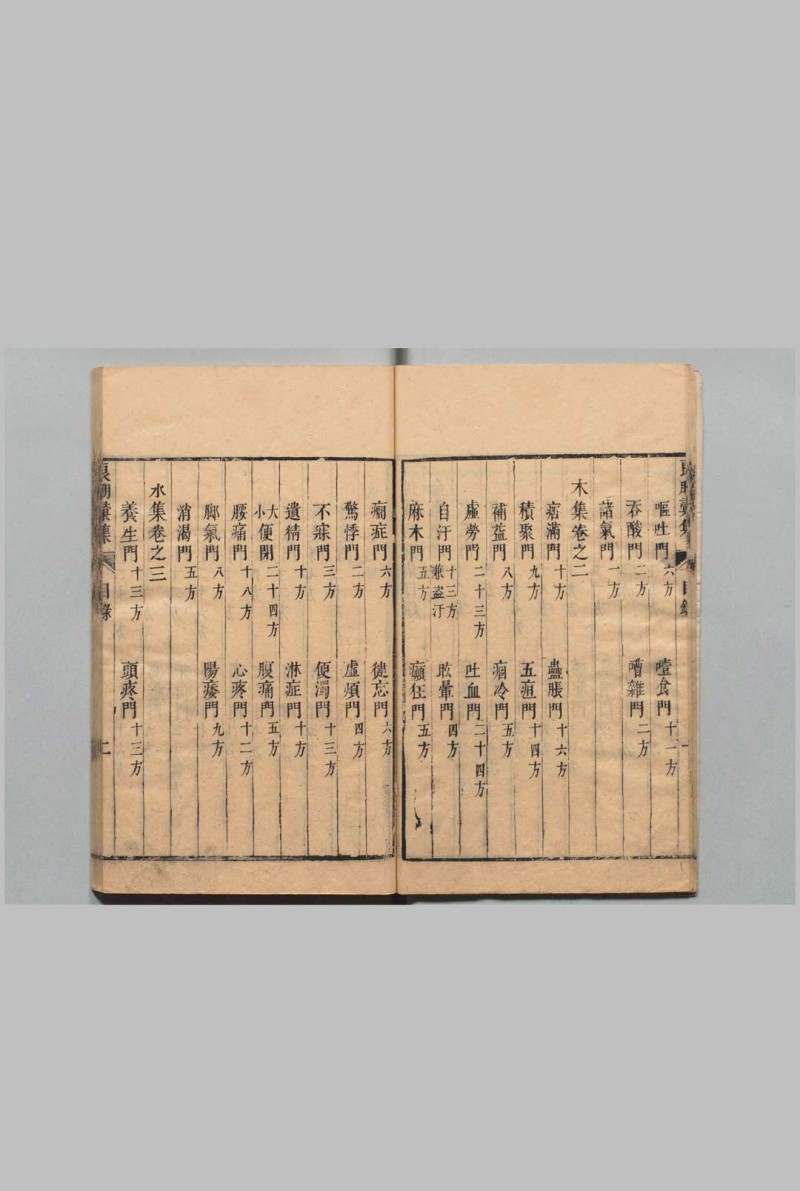 嘔吐門六方 噎食門十一方
吞酸門二方 嘈雜門二方
諸氣門一方
木集卷之二
痞滿門十方 蠱脹門十六方
積聚門九方 五疸門十四方
補益門八方 痼冷門五方
虛勞門二十三方 吐血門二十四方
自汗門十三方兼盗汗 眩暈門四方
麻木門五方 癲狂門五方
癎症門六方 健忘門六方
驚悸門二方 虛煩門四方
不寐門三方 便濁門十三方
遺精門十方 淋症門十方
大小便閉二十四方 腹痛門五方
腰痛門十八方 心疼門十二方
脚氣門八方 陽痿門九方
消渴門五方
水集卷之三
養生門十三方 頭疼門十三方
良朋彙集 目錄